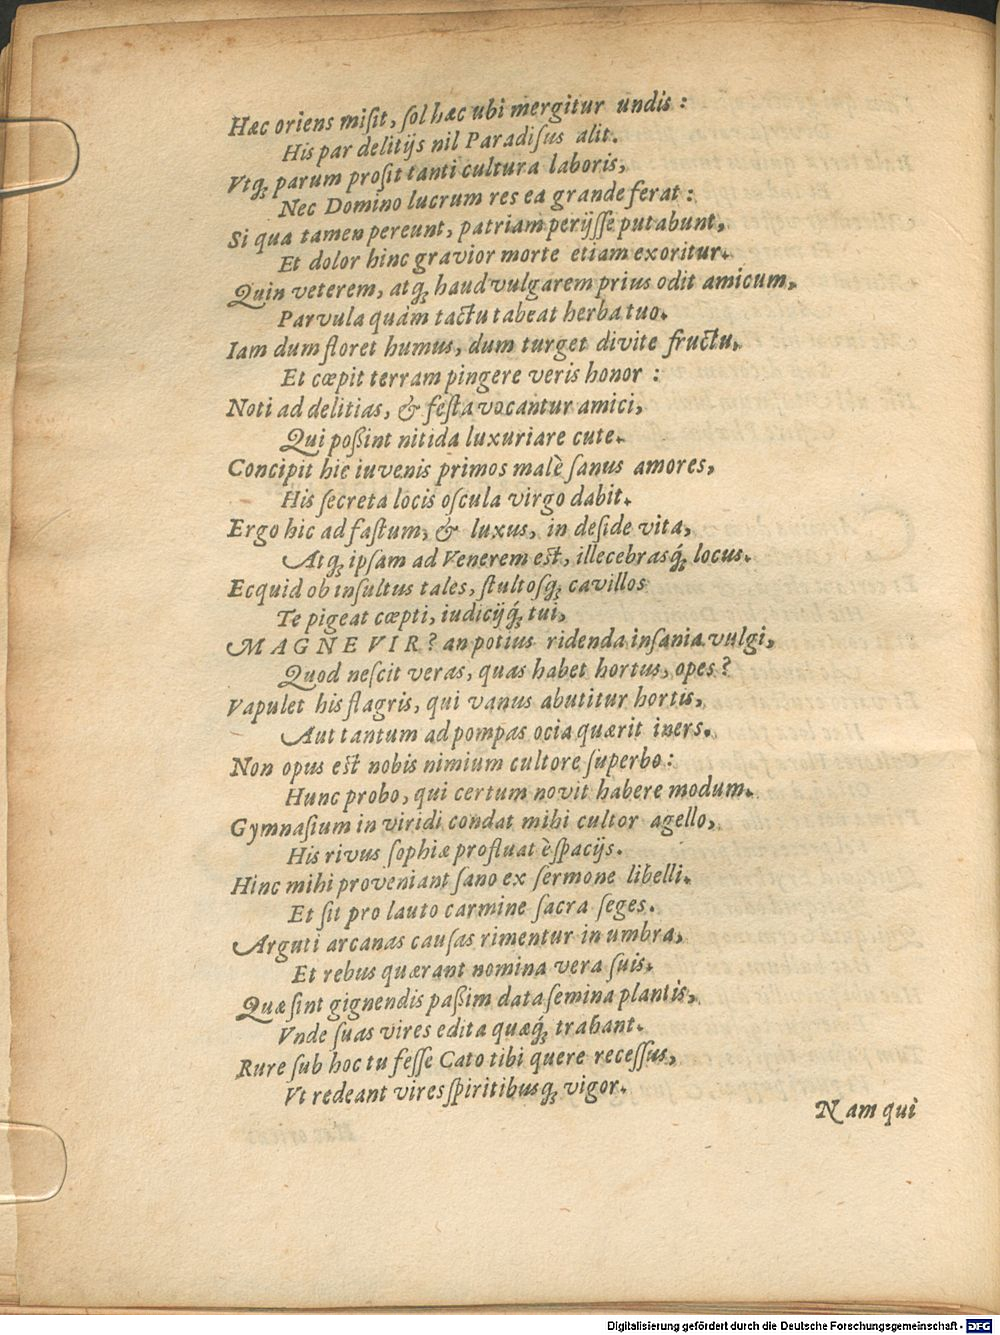 Hæc oriens miſit, ſol hæc ubi mergitur undis :
His par delitijs nil Paradiſus alit.
Vtq; parum proſit tanti cultura laboris,
Nec Domino lucrum res ea grande ferat :
Si qua tamen pereunt, patriam perijſſe putabunt,
Et dolor hinc gravior morte etiam exoritur.
Quin veterem, atq; haud vulgarem prius odit amicum,
Parvula quàm tactu tabeat herba tuo.
Iam dum floret humus, dum turget divite fructu,
Et cœpit terram pingere veris honor :
Noti ad delitias, & feſta vocantur amici,
Qui poßint nitida luxuriare cute.
Concipit hic iuvenis primos malè ſanus amores,
His ſecreta locis oſcula virgo dabit.
Ergo hic ad faſtum, & luxus, in deſide vita,
Atq; ipſam ad Venerem est, illecebrasq́; locus.
Ecquid ob inſultus tales, ſtultoſq; cavillos
Te pigeat cœpti, iudicijq́; tui,
MAGNE VIR? an potius ridenda inſania vulgi,
Quod neſcit veras, quas habet hortus, opes?
Vapulet his flagris, qui vanus abutitur hortis,
Aut tantum ad pompas ocia quærit iners.
Non opus est nobis nimium cultore ſuperbo :
Hunc probo, qui certum novit habere modum.
Gymnaſium in viridi condat mihi cultor agello,
His rivus ſophiæ profluat è ſpacijs.
Hinc mihi proveniant ſano ex ſermone libelli.
Et ſit pro lauto carmine ſacra ſeges.
Arguti arcanas cauſas rimentur in umbra,
Et rebus quærant nomina vera ſuis.
Quæ ſint gignendis paßim data ſemina plantis,
Vnde ſuas vires edita quæq́; trahant.
Rure ſub hoc tu feſſe Cato tibi quere receſſus,
Vt redeant vires ſpiritibusq; vigor.
Nam qui
Digitalisierung gefördert durch die Deutsche Forschungsgemeinschaft - DFG